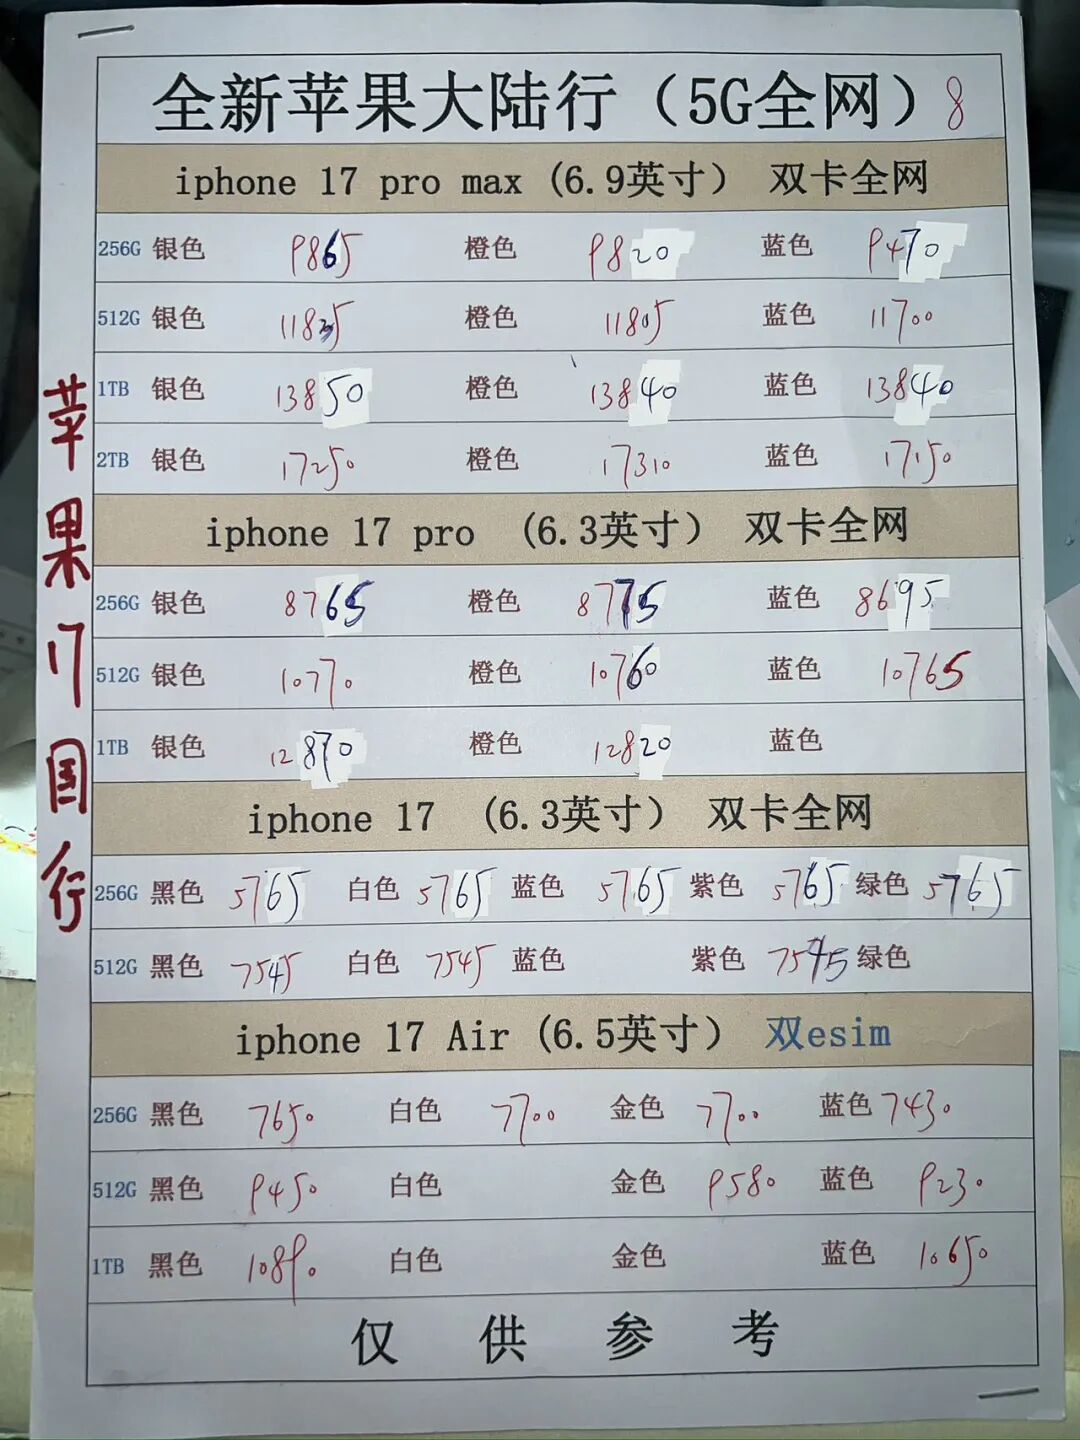 全新苹果大陆行（5G全网）8
iphone 17 pro max (6.9英寸） 双卡全网
256G 银色 9865 橙色 9820 蓝色 9470
512G 银色 11835 橙色 11805 蓝色 11700
1TB 银色 13850 橙色 13840 蓝色 13840
2TB 银色 17250 橙色 17310 蓝色 17150
iphone 17 pro （6.3英寸） 双卡全网
256G 银色 8765 橙色 8775 蓝色 8695
512G 银色 10770 橙色 10760 蓝色 10765
1TB 银色 12870 橙色 12820 蓝色
iphone 17 （6.3英寸） 双卡全网
256G 黑色 5765 白色 5765 蓝色 5765 紫色 5765 绿色 5765
512G 黑色 7545 白色 7545 蓝色 紫色 7545 绿色
iphone 17 Air (6.5英寸） 双esim
256G 黑色 7650 白色 7700 金色 7700 蓝色 7430
512G 黑色 9450 白色 金色 9580 蓝色 9230
1TB 黑色 10890 白色 金色 蓝色 10650
仅供参考
苹果17国行